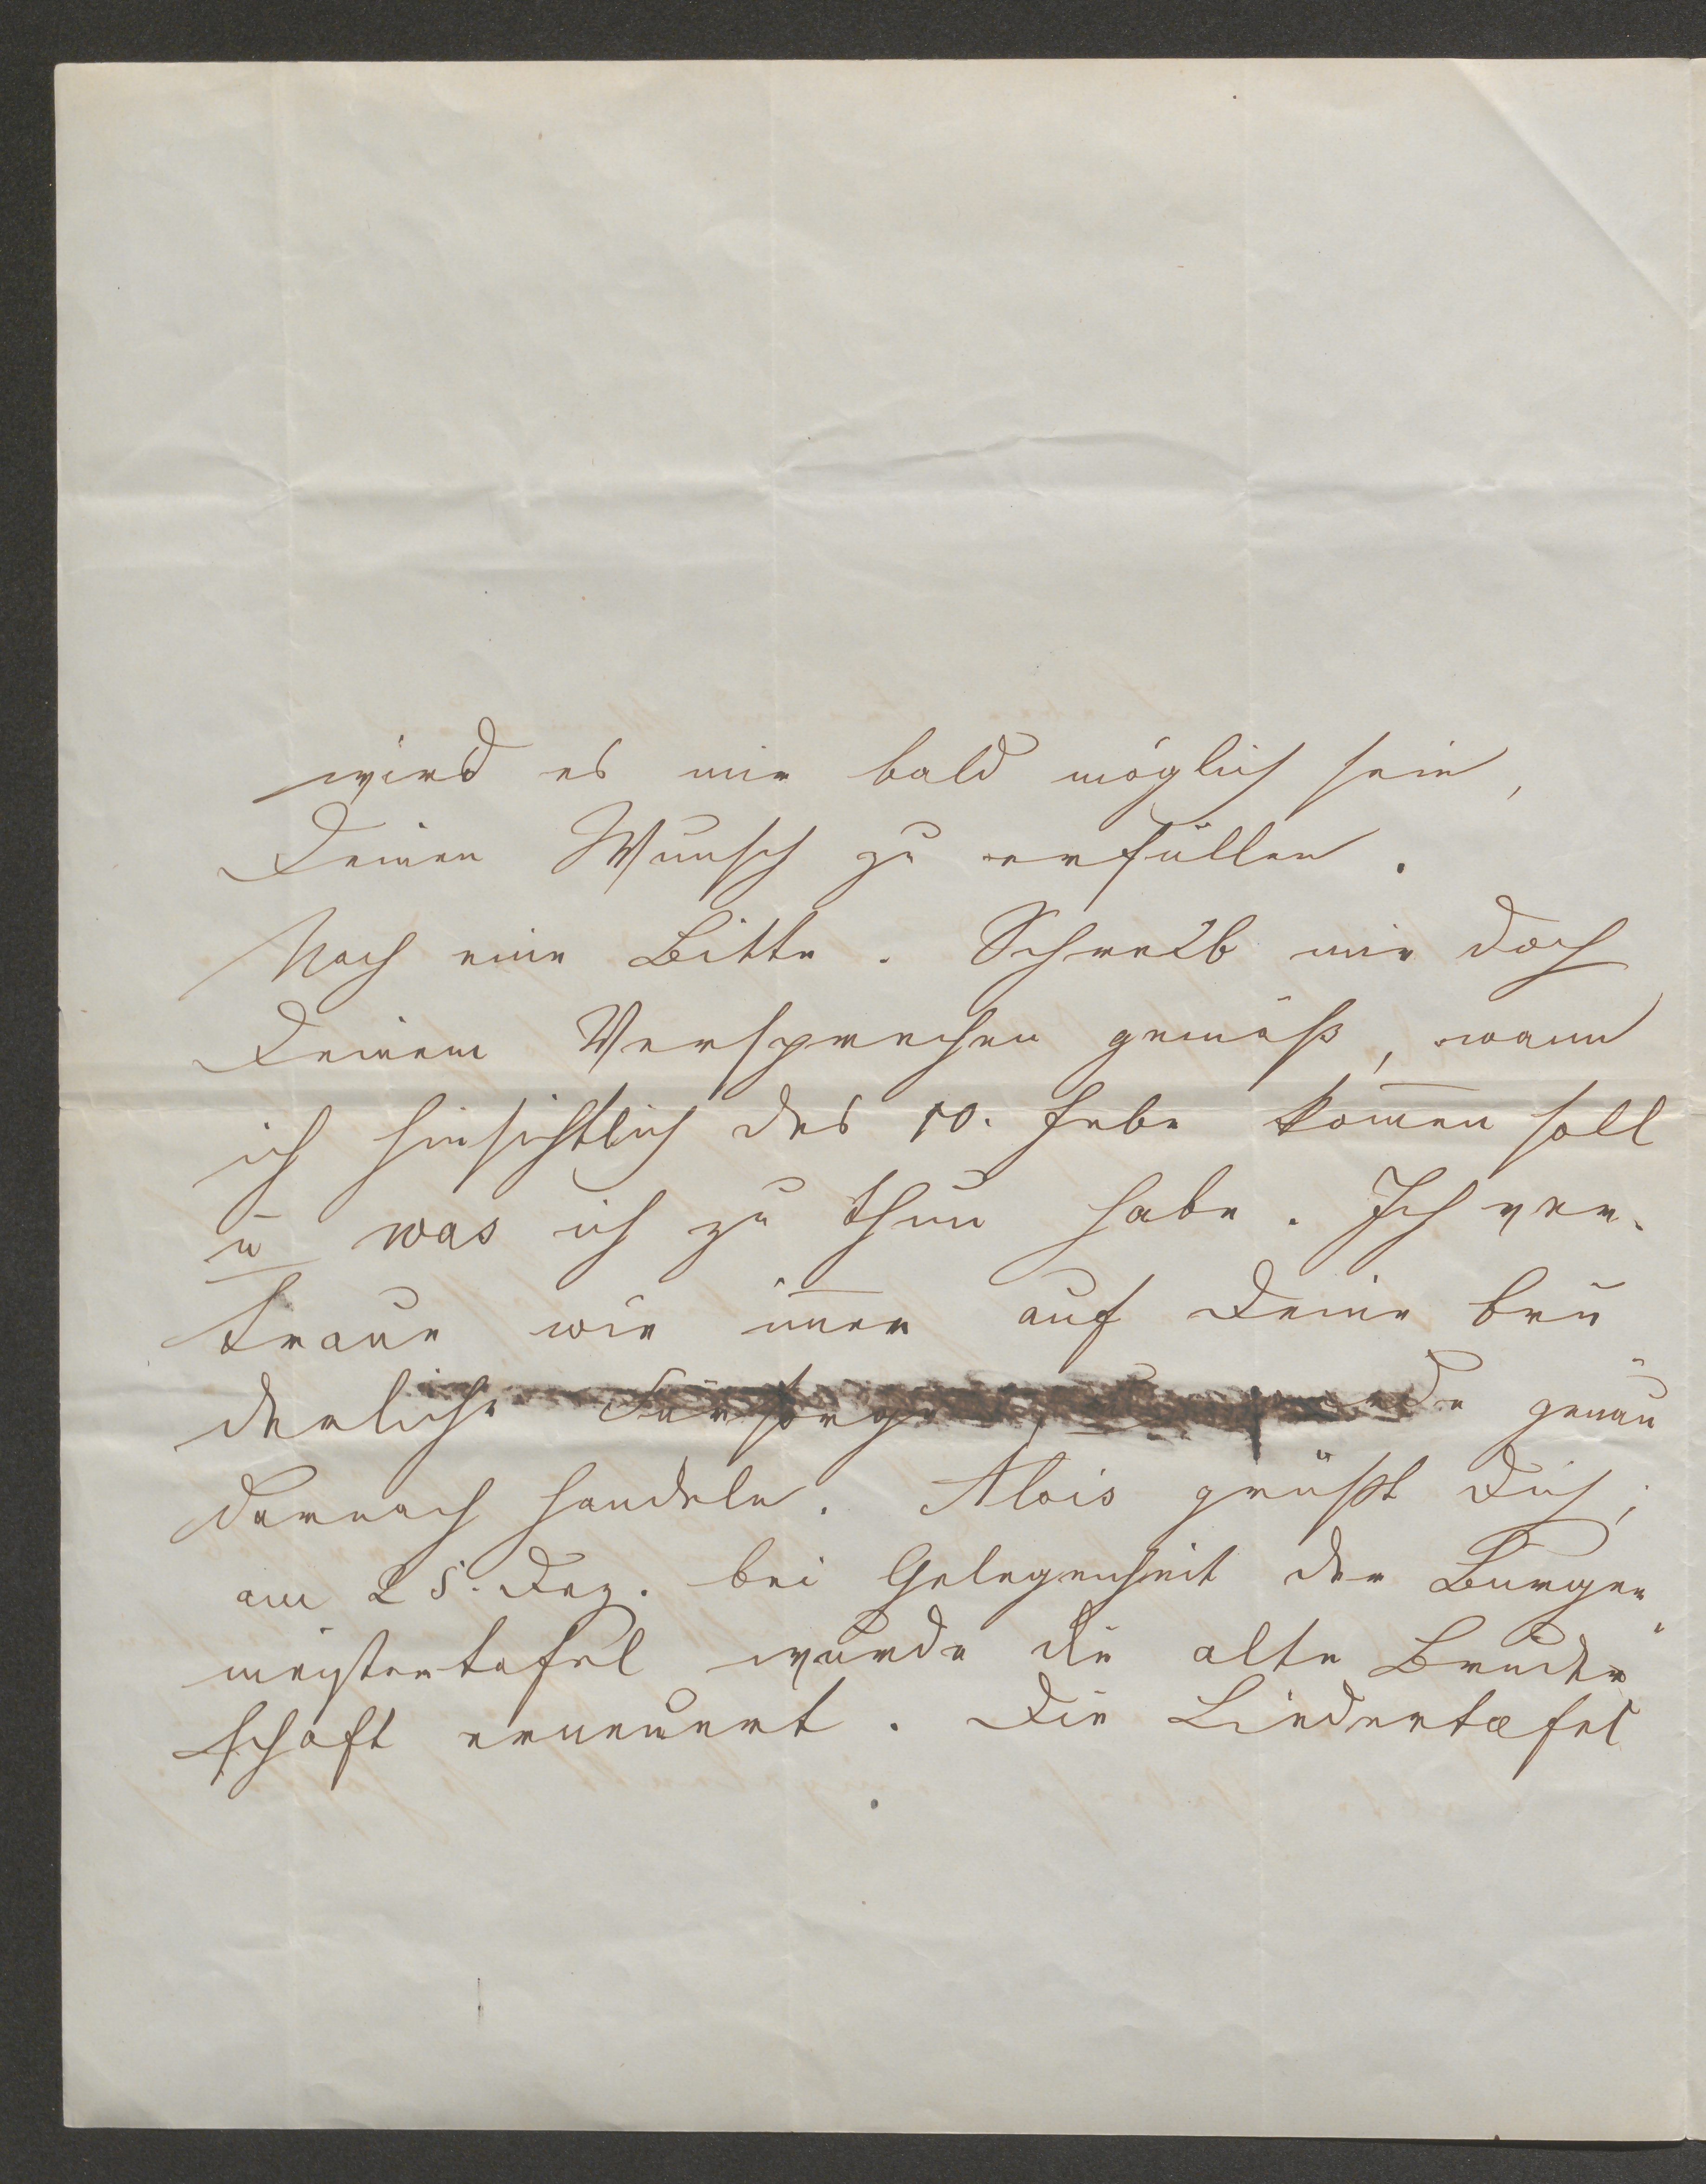 wird es mir bald möglich sein,
Deinen Wunsch zu erfüllen.
Noch eine Bitte. Schreib mir doch
Deinem Versprechen gemäß, wann
ich hinsichtlich des 10. Febr kom̄en soll
u was ich zu thun habe. Ich ver-
traue wie im̄er auf Deine brü
derliche Fürsorge, genau
darnach handeln. Alois grüßt Dich;
am 25. Dez. bei Gelegenheit der Bürger
meistertafel wurde die alte Bruder
schaft erneuert. Die Liedertafel